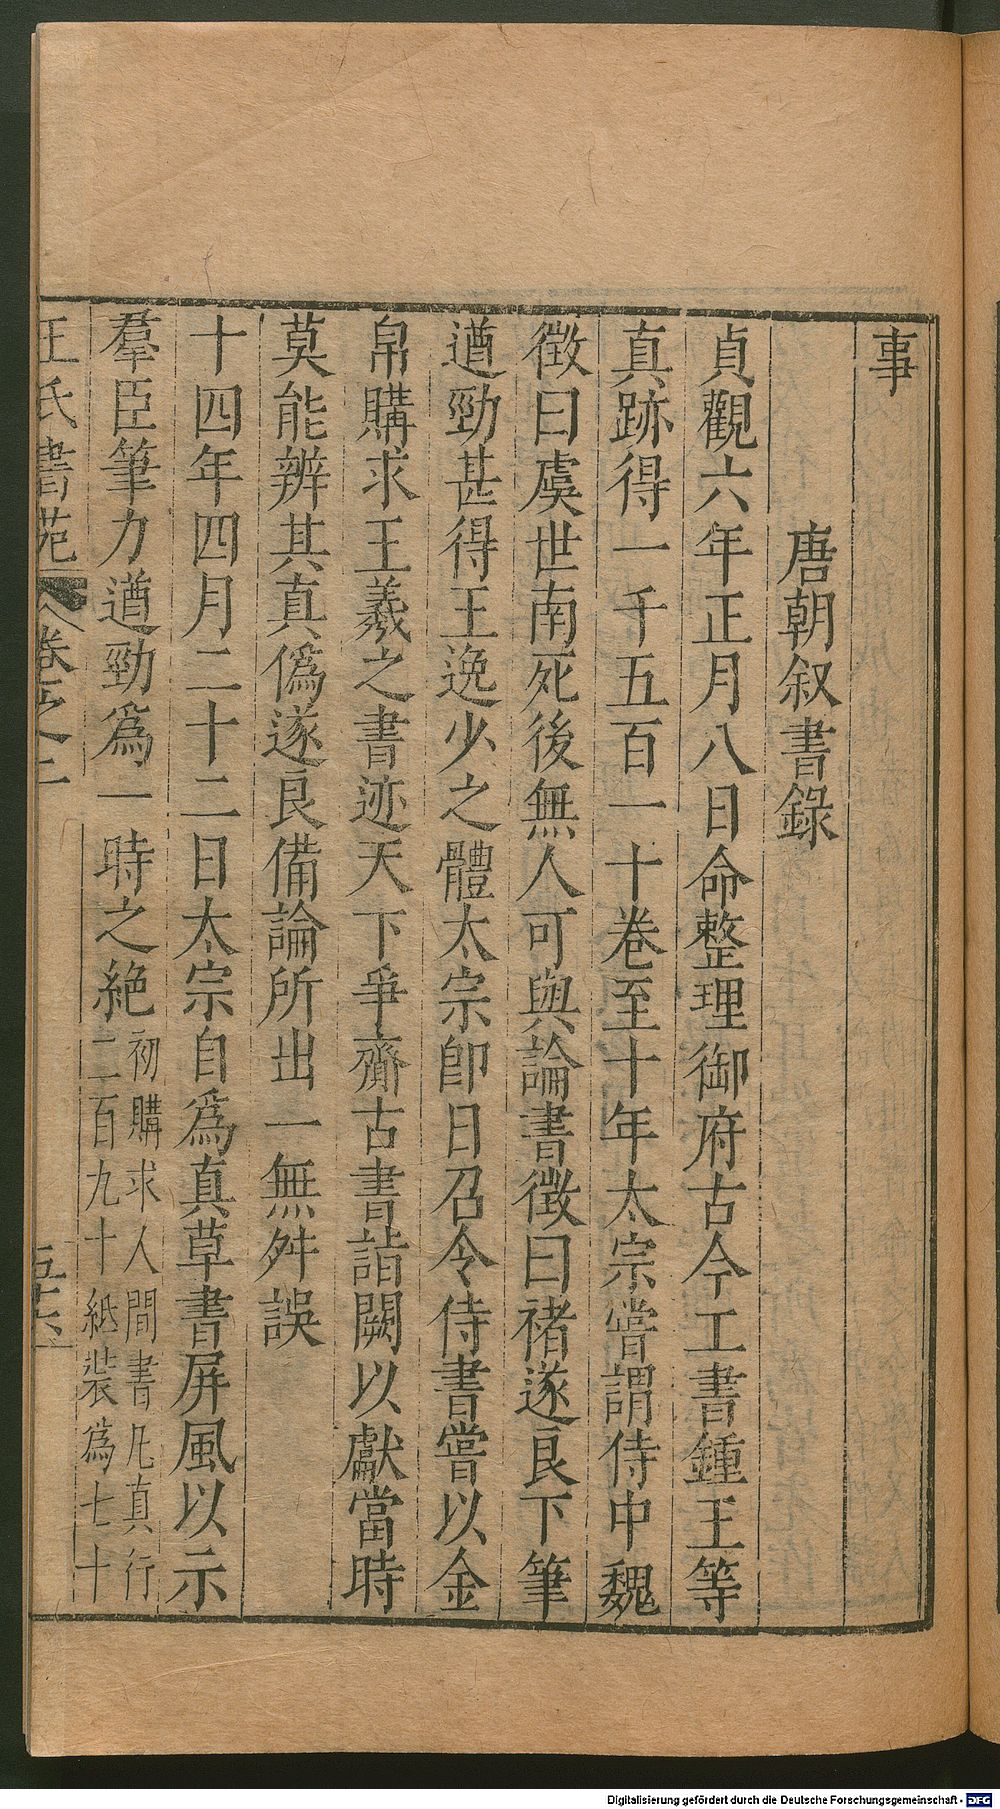 事
唐朝叙書錄
貞觀六年正月八日命整理御府古今工書鍾王等
真跡得一千五百一十卷至十年太宗嘗謂侍中魏
徵曰虞世南死後無人可與論書徵曰褚遂良下筆
遒勁甚得王逸少之體太宗卽日召令侍書嘗以金
帛購求王羲之書迹天下爭齎古書詣闕以獻當時
莫能辨其真僞遂良備論所出一無舛誤
十四年四月二十二日太宗自爲真草書屏風以示
羣臣筆力遒勁爲一時之絕
初購求人間書凡真行
二百九十紙裝爲七十
王氏書苑 卷之二
五十六
Digitalisierung gefördert durch die Deutsche Forschungsgemeinschaft - DFG